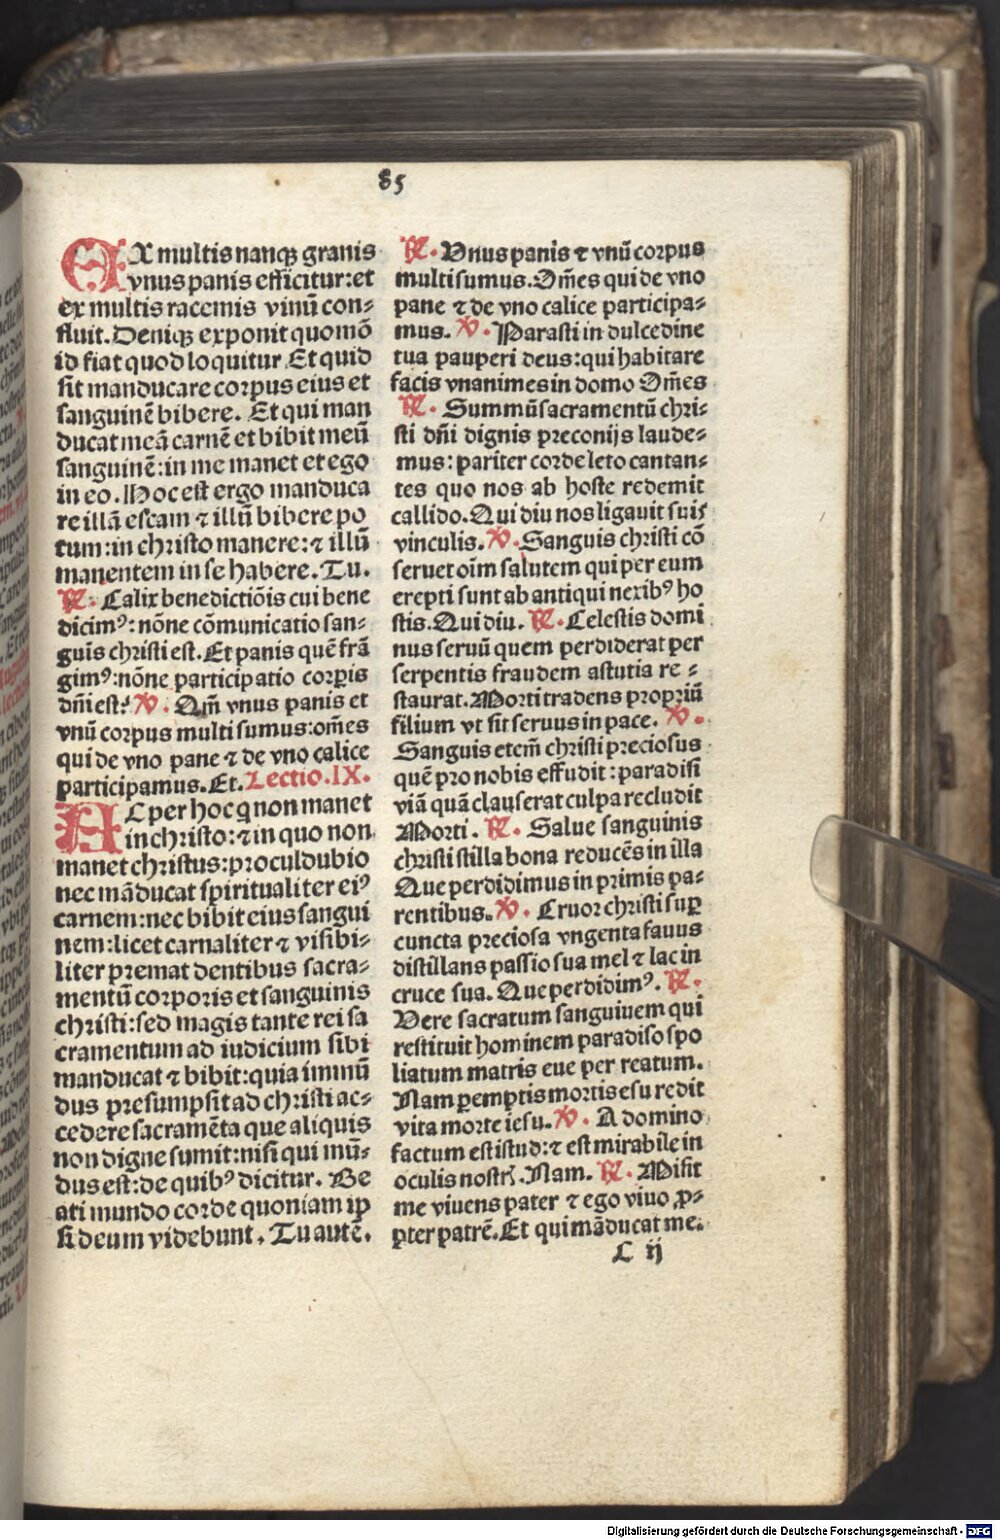 85
EX multis nanqꝫ granis
vnus panis efficitur: et
ex multis racemis vinū con⸗
fluit. Deniqꝫ exponit quomō
id fiat quod loquitur. Et quid
sit manducare corpus eius et
sanguinē bibere. Et qui man
ducat meā carnē et bibit meū
sanguinē: in me manet et ego
in eo. Hoc est ergo manduca
re illā escam ⁊ illū bibere po
tum: in christo manere: ⁊ illū
manentem in se habere. Tu.
℟. Calix benedictiōis cui bene
dicimꝰ: nōne cōmunicatio san⸗
guis christi est. Et panis quē frā
gimꝰ: nōne participatio corpis
dñi est? ℣. Qm̄ vnus panis et
vnū corpus multi sumus: om̄es
qui de vno pane ⁊ de vno calice
participamus. Et. Lectio. IX.
AC per hoc q non manet
in christo: ⁊ in quo non
manet christus: proculdubio
nec māducat spiritualiter eiꝰ
carnem: nec bibit eius sangui
nem: licet carnaliter ⁊ visibi⸗
liter premat dentibus sacra⸗
mentū corporis et sanguinis
christi: sed magis tante rei sa
cramentum ad iudicium sibi
manducat ⁊ bibit: quia immū
dus presumpsit ad christi ac⸗
cedere sacramēta que aliquis
non digne sumit: nisi qui mū⸗
dus est: de quibꝰ dicitur. Be
ati mundo corde quoniam ip
si deum videbunt. Tu autē.
℟. Unus panis ⁊ vnū corpus
multi sumus. Om̄es qui de vno
pane ⁊ de vno calice participa⸗
mus. ℣. Parasti in dulcedine
tua pauperi deus: qui habitare
facis vnanimes in domo Om̄es
℟. Summū sacramentū chri⸗
sti dñi dignis preconijs laude⸗
mus: pariter corde leto cantan⸗
tes quo nos ab hoste redemit
callido. Qui diu nos ligauit suis
vinculis. ℣. Sanguis christi cō
seruet oīm salutem qui per eum
erepti sunt ab antiqui nexibꝰ ho
stis. Qui diu. ℟. Celestis domi
nus seruū quem perdiderat per
serpentis fraudem astutia re⸗
staurat. Morti tradens propriū
filium vt sit seruus in pace. ℣.
Sanguis etem̄ christi preciosus
quē pro nobis effudit: paradisi
viā quā clauserat culpa recludit
Morti. ℟. Salue sanguinis
christi stilla bona reducēs in illa
Que perdidimus in primis pa⸗
rentibus. ℣. Cruor christi sup
cuncta preciosa vngenta fauus
distillans passio sua mel ⁊ lac in
cruce sua. Que perdidimꝰ. ℟.
Vere sacratum sanguiuem qui
restituit hominem paradiso spo
liatum matris eue per reatum.
Nam peremptis mortis esu redit
vita morte iesu. ℣. A domino
factum est istud: ⁊ est mirabile in
oculis nostrꝭ. Nam. ℟. Misit
me viuens pater ⁊ ego viuo ꝓ⸗
pter patrē. Et qui māducat me.
C ij
Digitalisierung gefördert durch die Deutsche Forschungsgemeinschaft - DFG